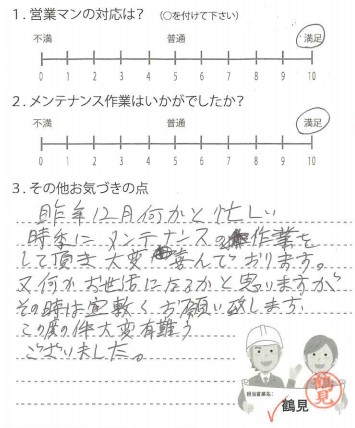 1.営業マンの対応は? (○を付けて下さい)
不満 普通 満足
0 1 2 3 4 5 6 7 8 9 10
2.メンテナンス作業はいかがでしたか?
不満 普通 満足
0 1 2 3 4 5 6 7 8 9 10
3.その他お気づきの点
昨年12月何かと忙しい
時季にメンテナンスの作業を
して頂き大変喜んでおります。
又何かお世話になるかと思いますが
その時は宜敷くお願い致します
この度の件大変有難う
ございました。
担当営業名:
鶴見
鶴見